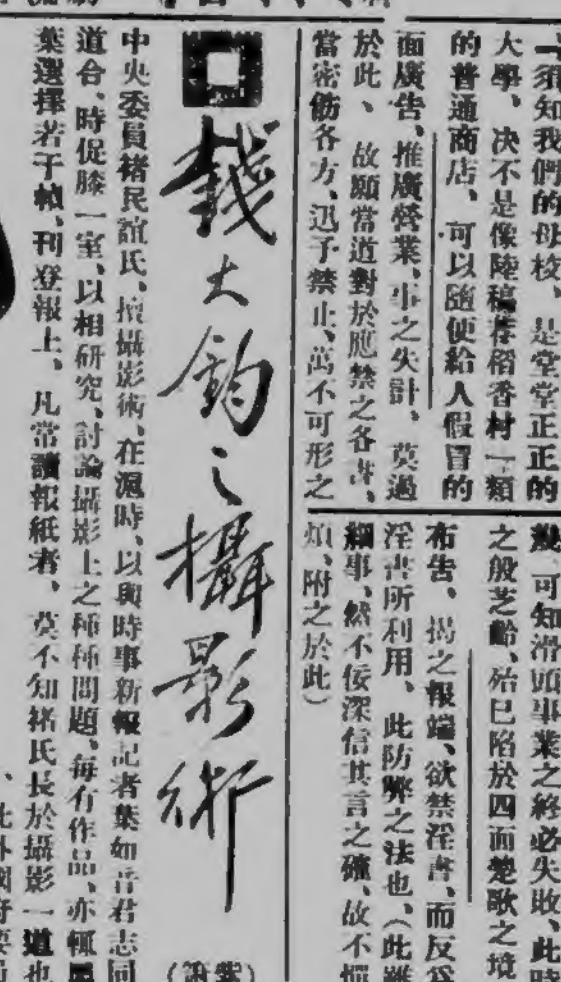 須知我們的母校、是堂堂正正的
大學、决不是像陸稿荐稻香村一類
的普通商店、可以随便給人假冒的
面廣告、推廣營業、事之失計、莫過
於此、故願當道對於應禁之各書、
當密飭各方、迅予禁止、萬不可形之
可知滑頭事業之終必失敗、此時
之般芝齡、殆已陷於四面楚歌之境
布告、揭之報端、欲禁淫書、而反爲
淫書所利用、此防弊之法也、(此雖
細事、然不佞深信其言之確、故不憚
煩、附之於此)
錢大鈞之攝影術
中央委員褚民誼氏、擅攝影術、在滬時、以與時事新報記者葉如音君志同
道合、時促膝一室、以相研究、討論攝影上之種種問題、每有作品、亦輒
葉選擇若于幀、刊登報上、凡常讀報紙者、莫不知褚氏長於攝影一道也
、此外國府要